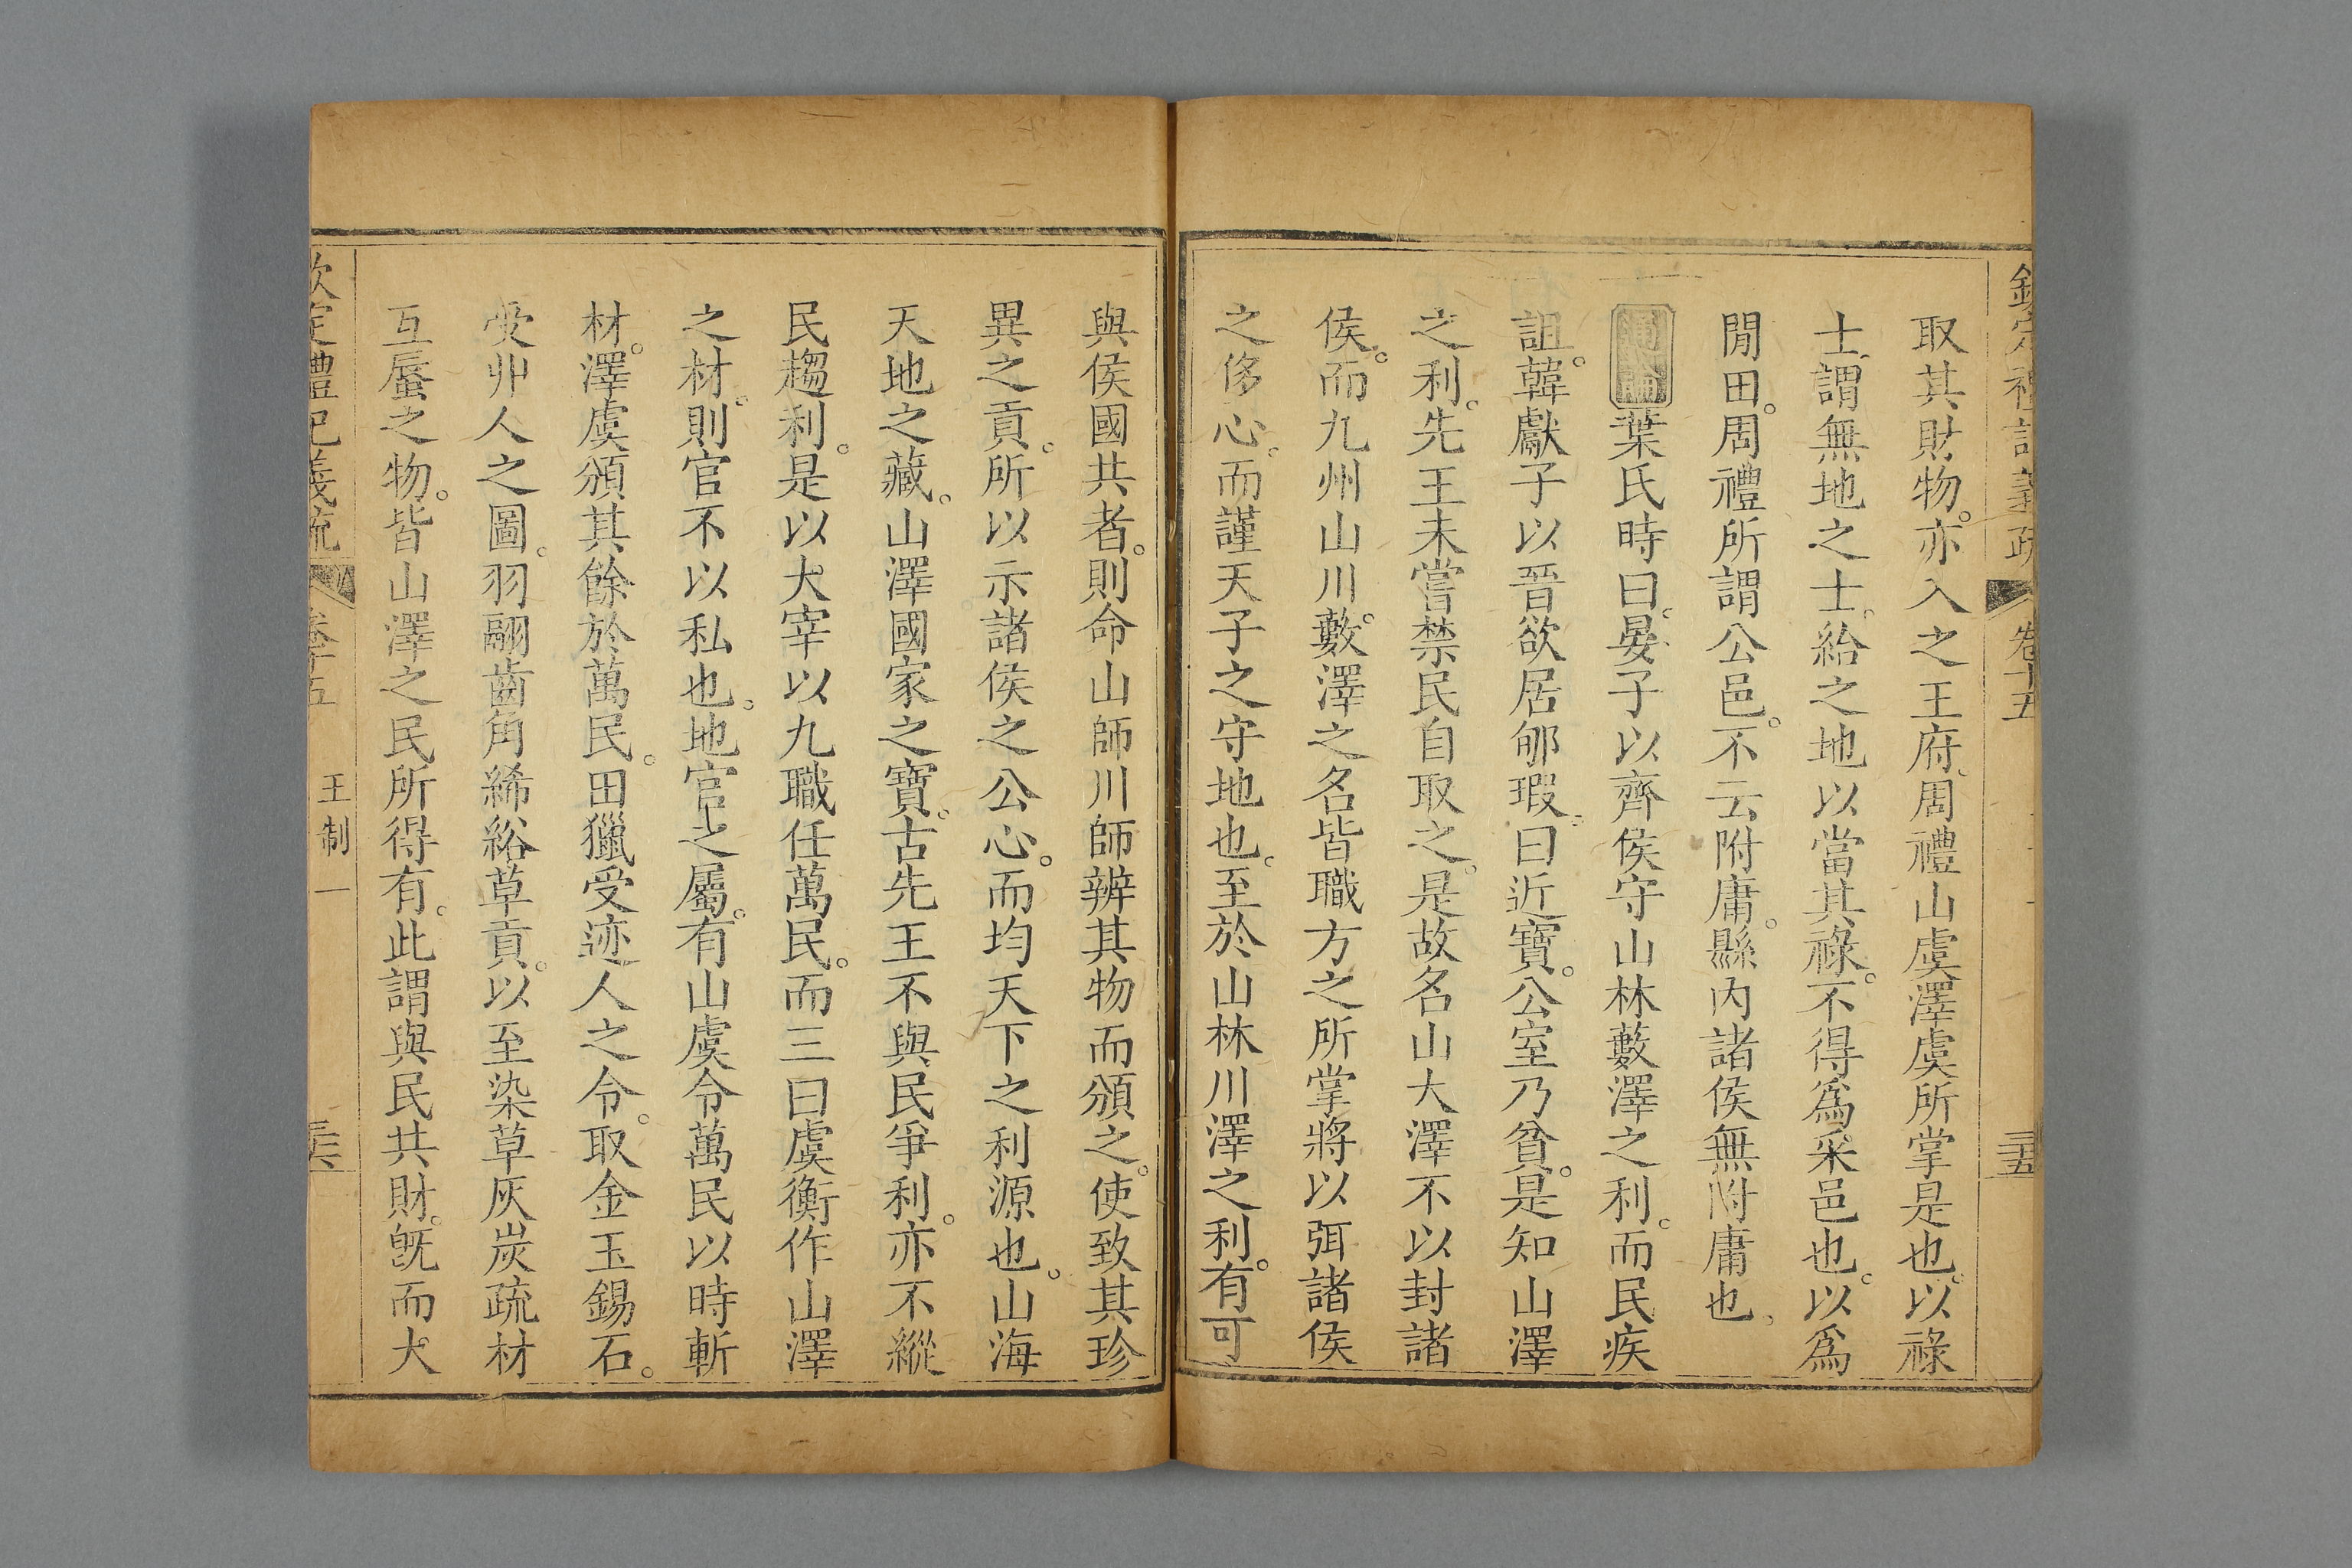 欽定禮記義疏 卷十五 三五
取其財物。亦入之王府、周禮山虞澤虞所掌是也。以祿
士、謂無地之士。給之地以當其祿。不得爲采邑也。以爲
閒田。周禮所謂公邑。不云附庸。縣內諸侯無附庸也、
通論葉氏時曰。晏子以齊侯守山林藪澤之利。而民疾
詛。韓獻子以晉欲居郇瑕。曰近寶。公室乃貧。是知山澤
之利。先王未嘗禁民自取之。是故名山大澤不以封諸
侯。而九州山川。藪澤之名皆職方之所掌將以弭諸侯
之侈心。而謹天子之守地也。至於山林川澤之利。有可
與侯國共者。則命山師川師辨其物而頒之。使致其珍
異之貢。所以示諸侯之公心。而均天下之利源也。山海
天地之藏。山澤國家之寶。古先王不與民爭利。亦不縱
民趨利。是以大宰以九職任萬民。而三曰虞衡作山澤
之材。則官不以私也。地官之屬。有山虞令萬民以時斬
材。澤虞頒其餘於萬民。田獵受迹人之令。取金玉錫石。
受丱人之圖。羽翮齒角絺綌草貢。以至染草灰炭疏材
互蜃之物。皆山澤之民所得有。此謂與民共財。旣而大
欽定禮記義疏 卷十五 王制一 三六